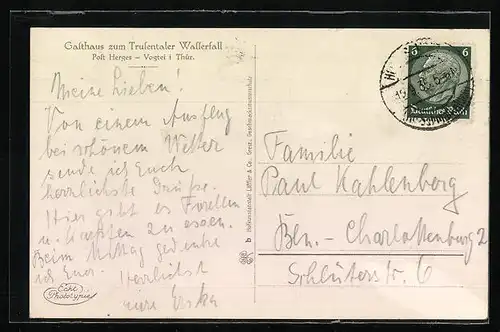 Gasthaus zum Trusentaler Wasserfall
Post Herges – Vogtei i Thür.
Meine Lieben!
Von einem Ausflug
bei schönem Wetter
sende ich Euch
herzlichste Grüße.
Hier gibt es Forellen
u. Karpfen zu essen.
Beim Mittag gedenke
ich Euer. Herzlichst
eure Erika
Echt
Photokupfer
6 6
Deutsches Reich
Familie
Paul Kahlenberg
Bln. - Charlottenburg 2
Schlüterstr. 6